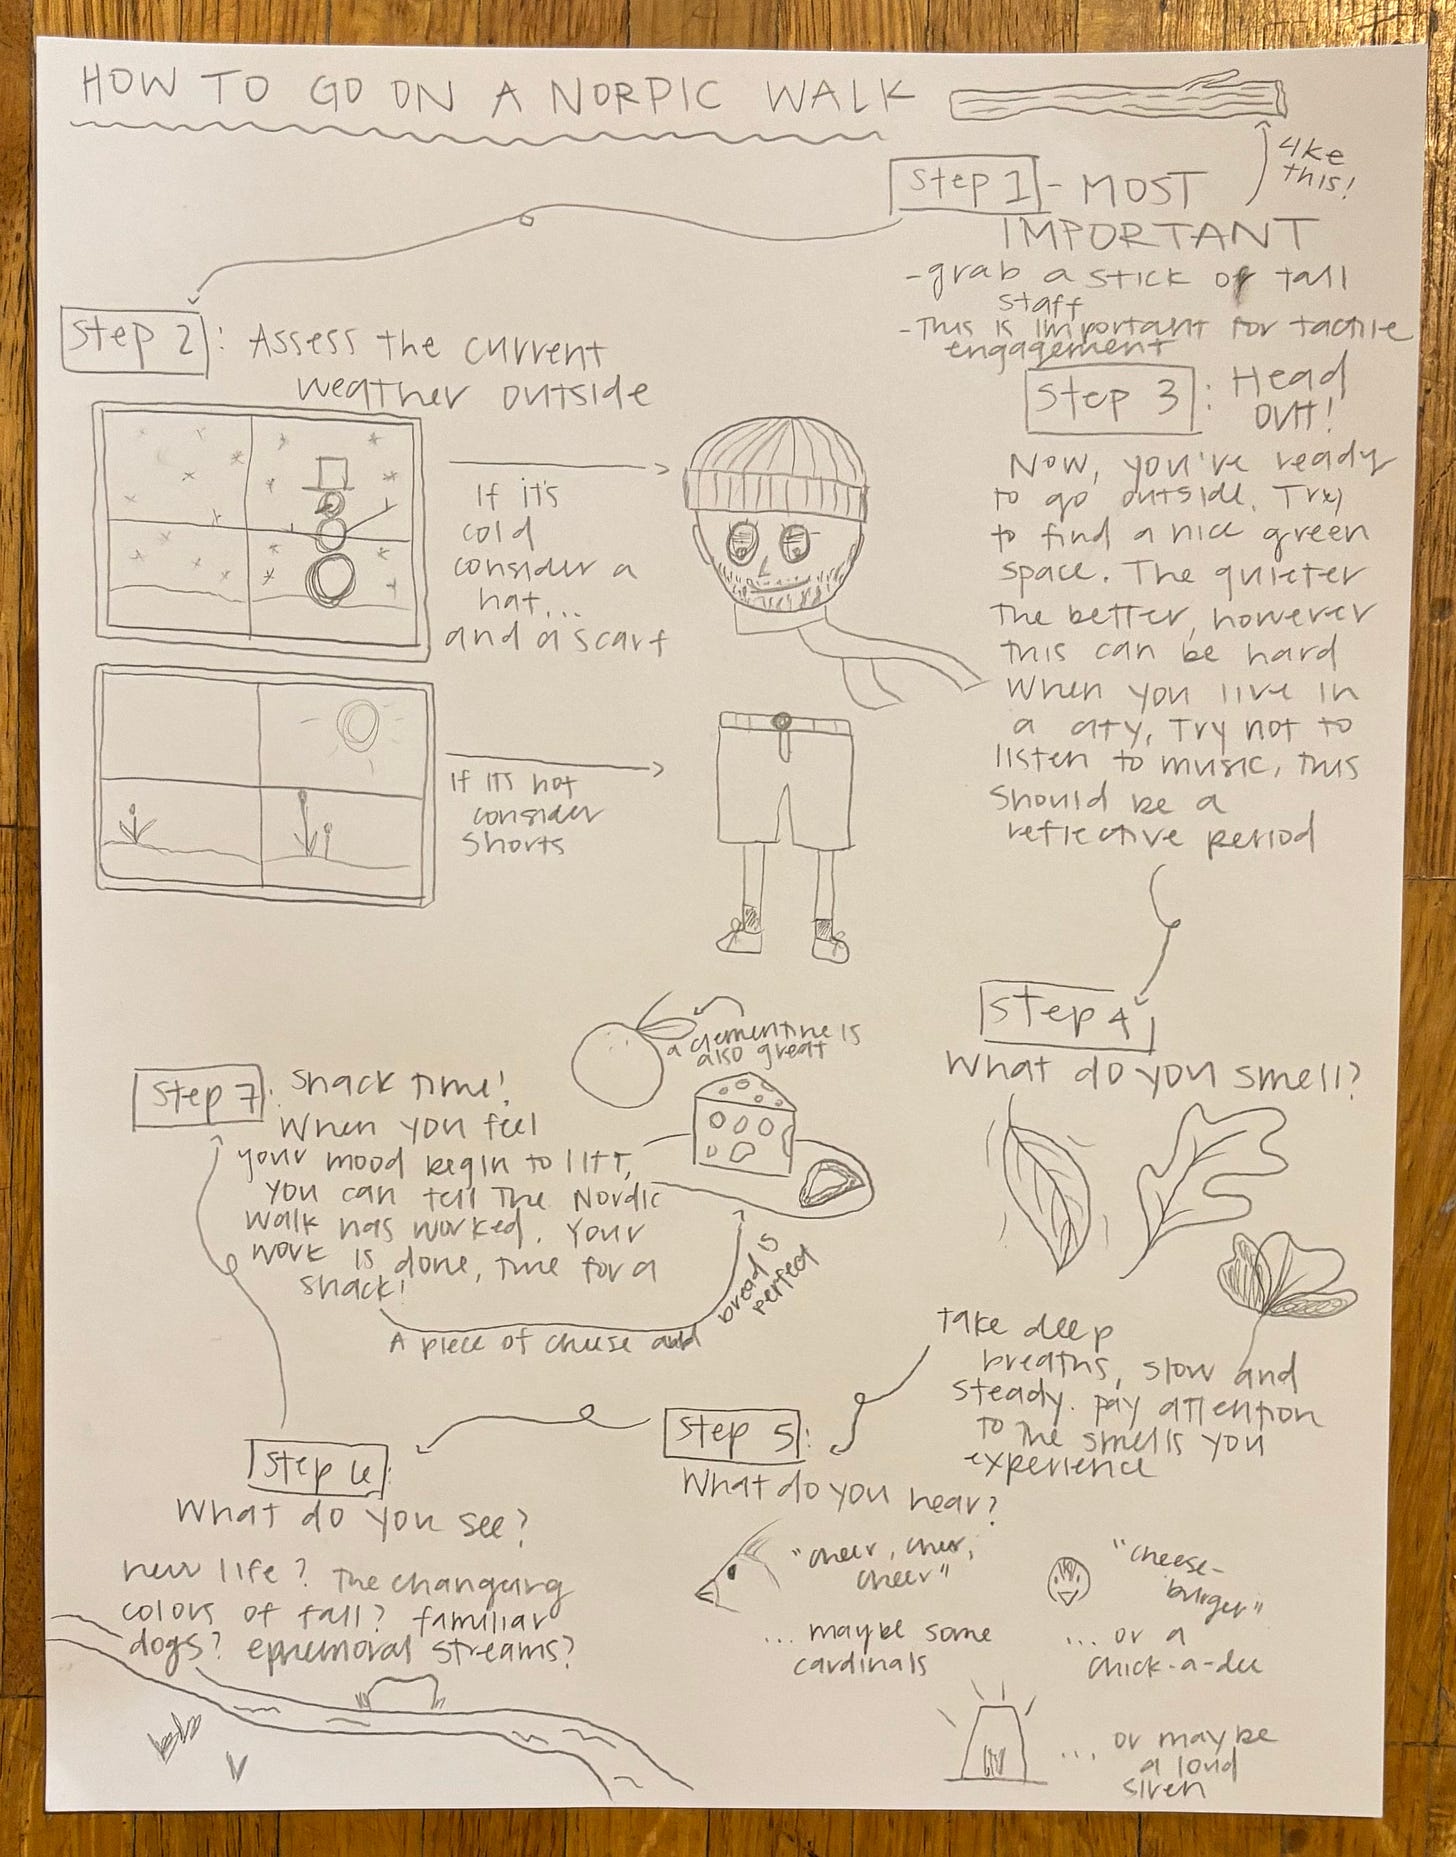 HOW TO GO ON A NORDIC WALK
like
this!
Step 1 - MOST
IMPORTANT
- grab a stick or tall
staff
- This is important for tactile
engagement
Step 2: Assess the current
weather outside
If it's
cold
consider a
hat...
and a scarf
If it's hot
consider
shorts
Step 3: Head
out!
Now, you've ready
to go outside. Try
to find a nice green
space. The quieter
the better, however
this can be hard
when you live in
a city, Try not to
listen to music, this
should be a
reflective period
Step 4
What do you smell?
take deep
breaths, slow and
steady. pay attention
to the smells you
experience
Step 5:
What do you hear?
"cheer, cheer,
cheer"
... maybe some
cardinals
"cheese-
burger"
... or a
chick-a-dee
... or maybe
a loud
siren
Step 6:
What do you see?
new life? The changing
colors of fall? familiar
dogs? ephemoral streams?
Step 7: Snack time!
When you feel
your mood begin to lift,
you can tell the Nordic
walk has worked. Your
work is done, time for a
snack!
A piece of cheese and
bread is
perfect
a clementine is
also great